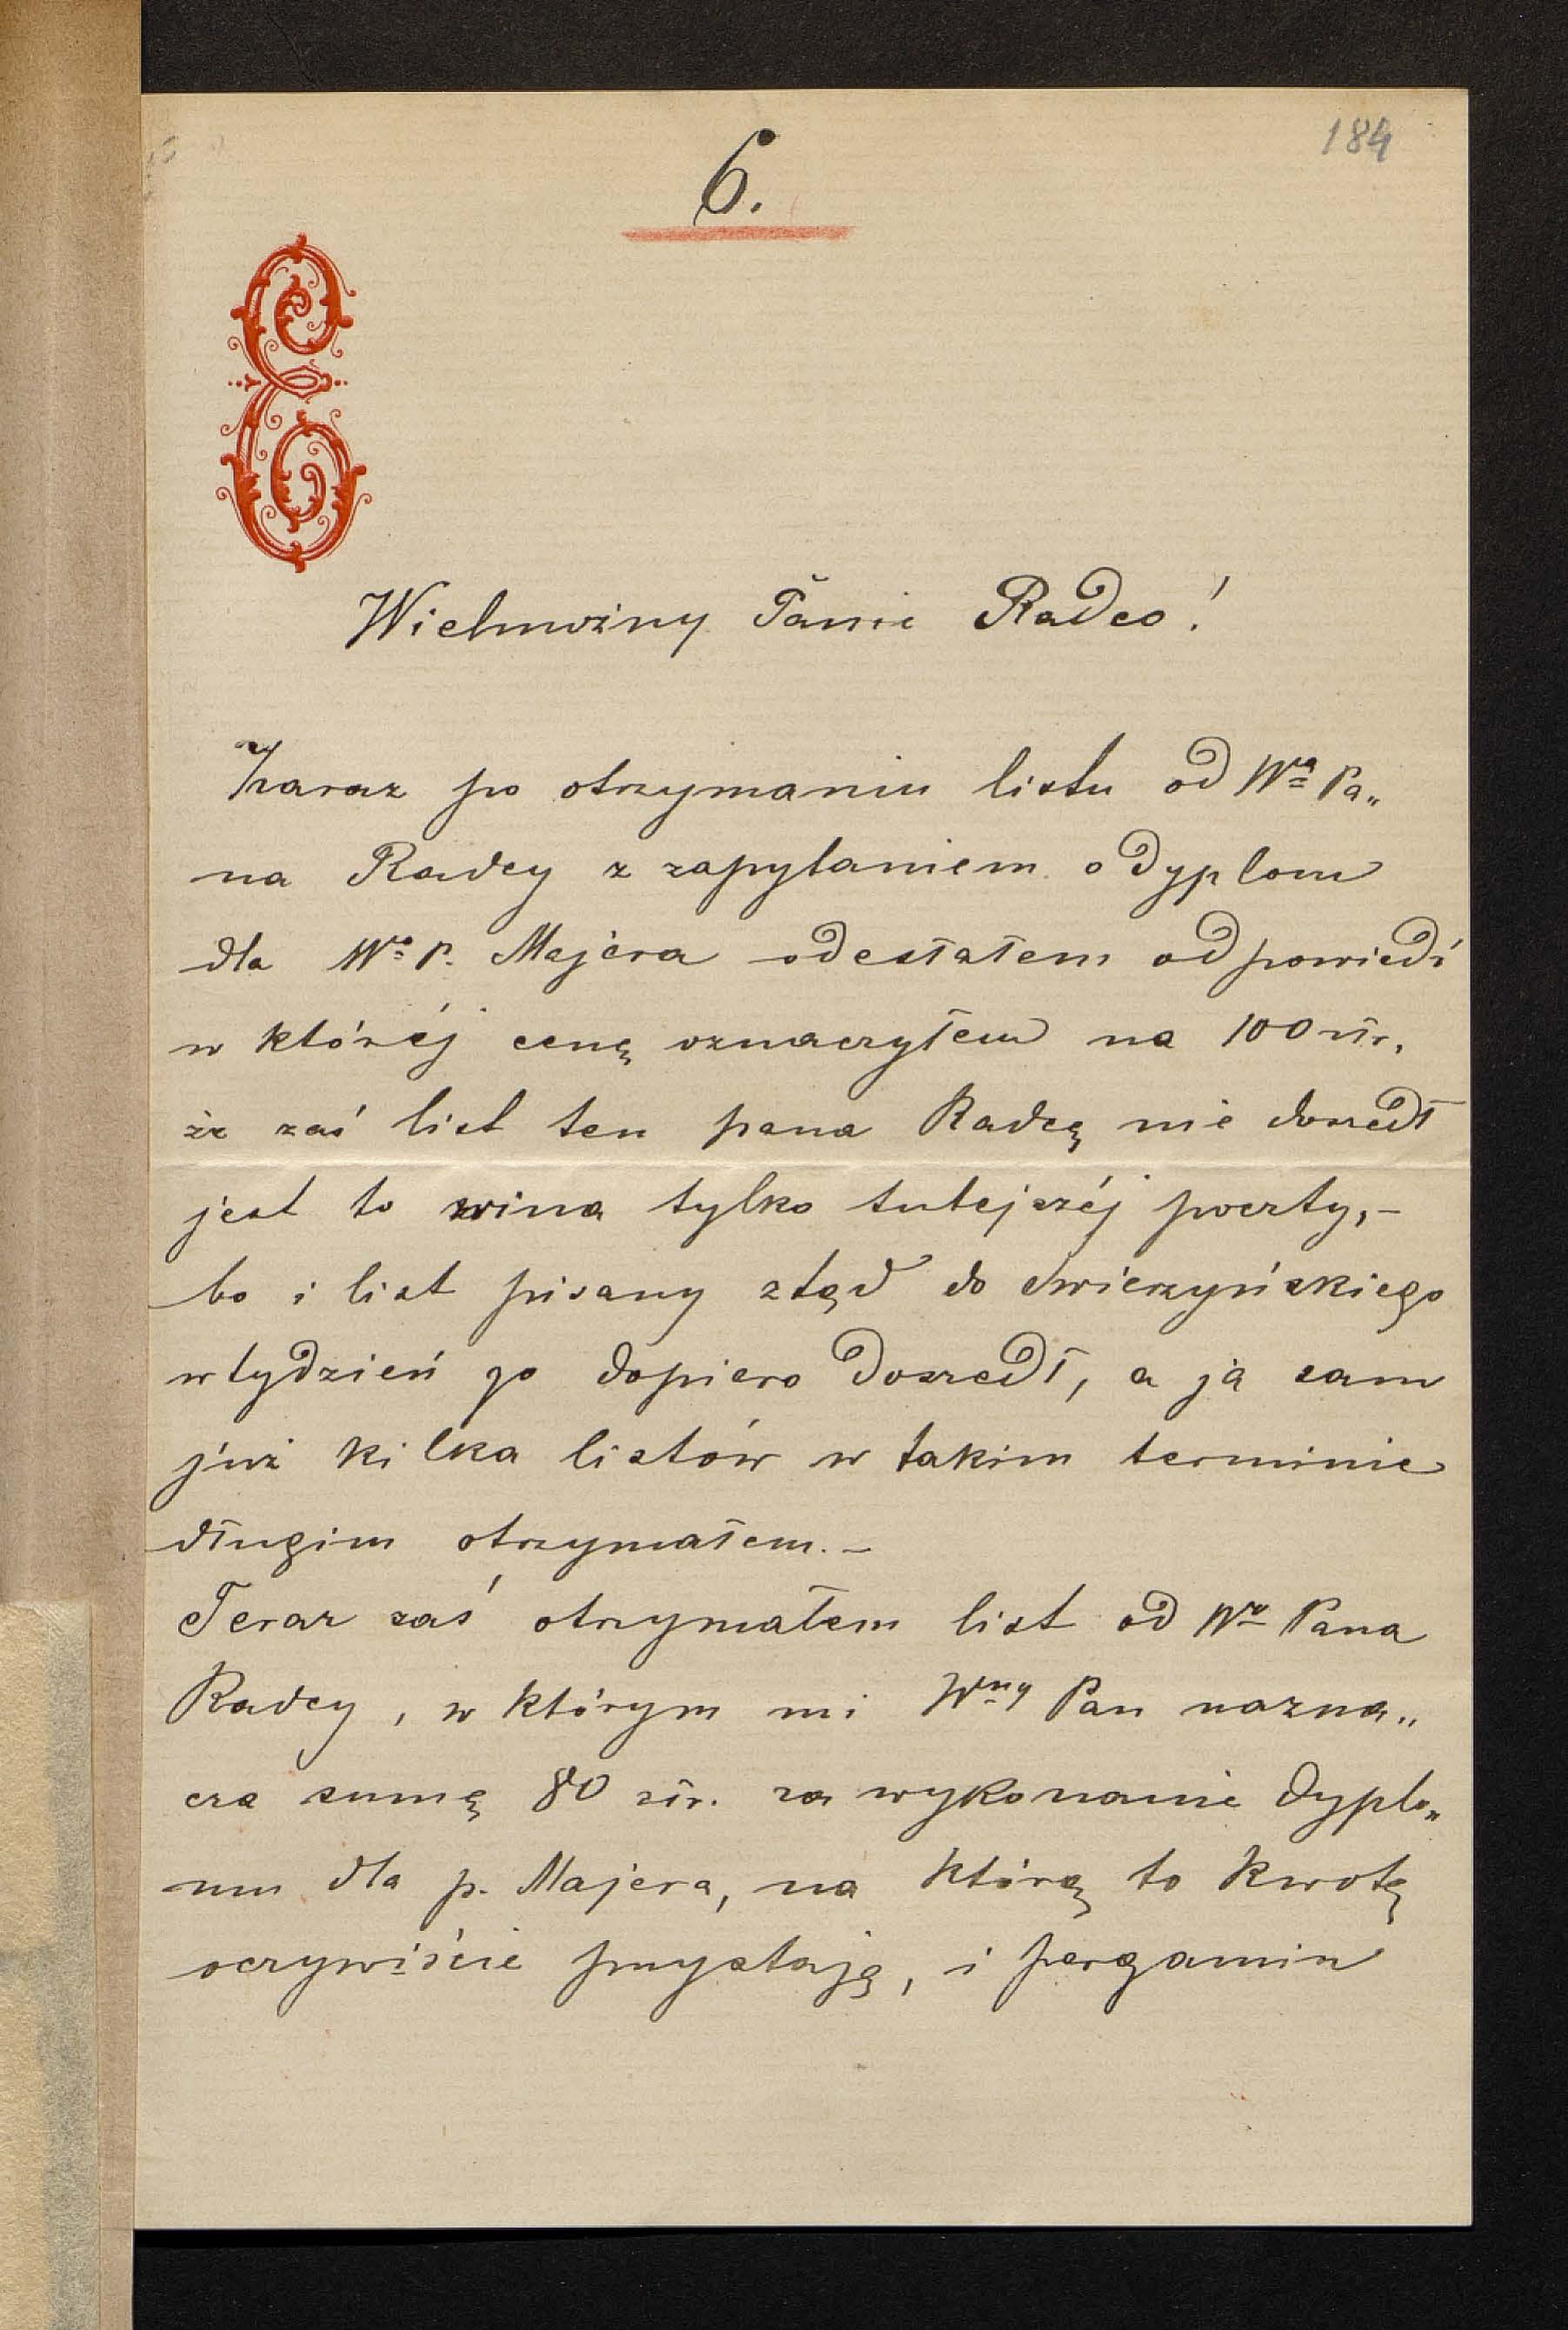 184
6.
Wielmożny Panie Radco!
Zaraz po otrzymaniu listu od Wgo Pa„
na Radcy z zapytaniem o dyplom
dla Wo P. Majera odesłałem odpowiedź
w któréj cenę oznaczyłem na 100 złr,
że zaś list ten pana Radcę nie doszedł
jest to wina tylko tutejszéj poczty,–
bo i list pisany ztąd do Świerzyńskiego
w tydzień go dopiero doszedł, a ja sam
już kilka listów w takim terminie
długim otrzymałem. –
Teraz zaś otrzymałem list od Wo Pana
Radcy, w którym mi Wny Pan nazna„
cza sumę 80 złr. za wykonanie dyplo„
mu dla p. Majera, na którą to kwotę
oczywiście przystaję, i pergamin